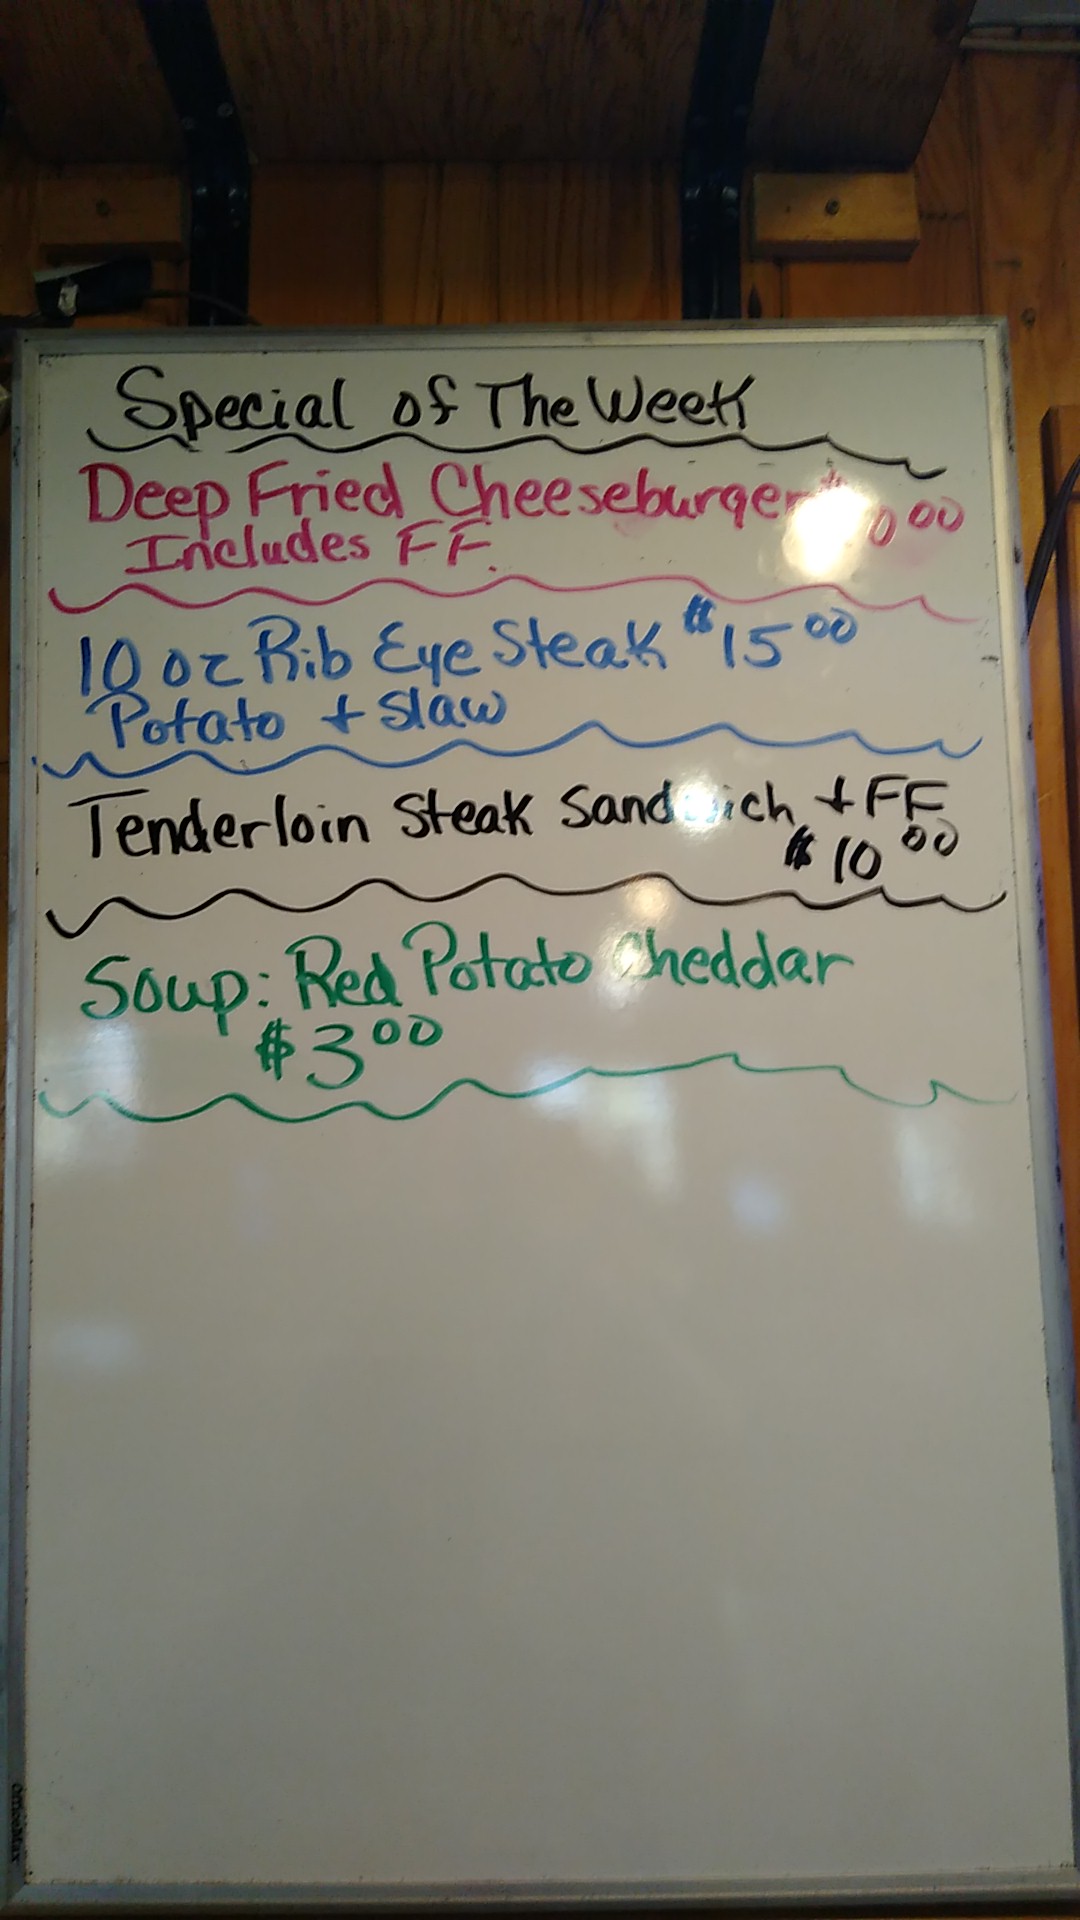 Special of The Week
Deep Fried Cheeseburger
Includes FF.
10 oz Rib Eye Steak $15 00
Potato + Slaw
Tenderloin Steak Sandwich + FF
$10 00
Soup: Red Potato Cheddar
$3 00